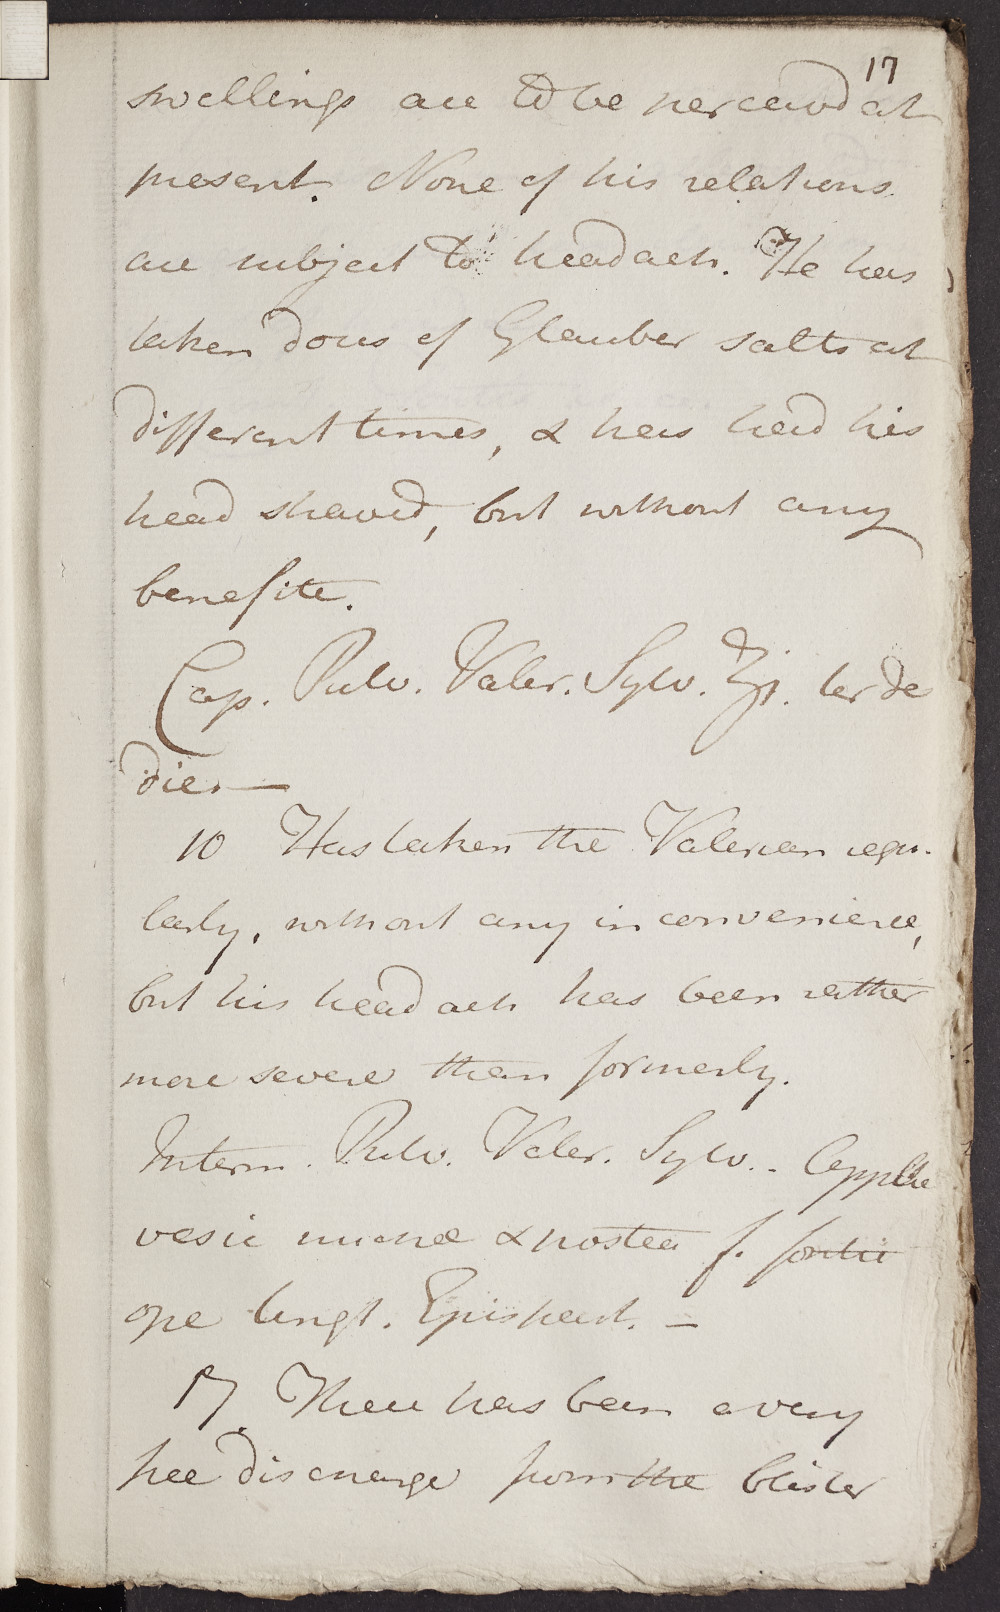 17
swellings are to be perceived at
present. None of his relations
are subject to headach. He has
taken doses of Glauber salts at
different times, & has had his
head shaved, but without any
benefite.
Cap. Pulv. Valer. Sylv. ʒj. ter de
die. —
10 Has taken the Valerian regu-
larly, without any inconvenience,
but his headach has been rather
more severe than formerly.
Interm. Pulv. Valer. Sylv. - Applic
vesic nuchae & postea f.
ope Ungt. Epispast. —
17. There has been a very
free discharge from the blister